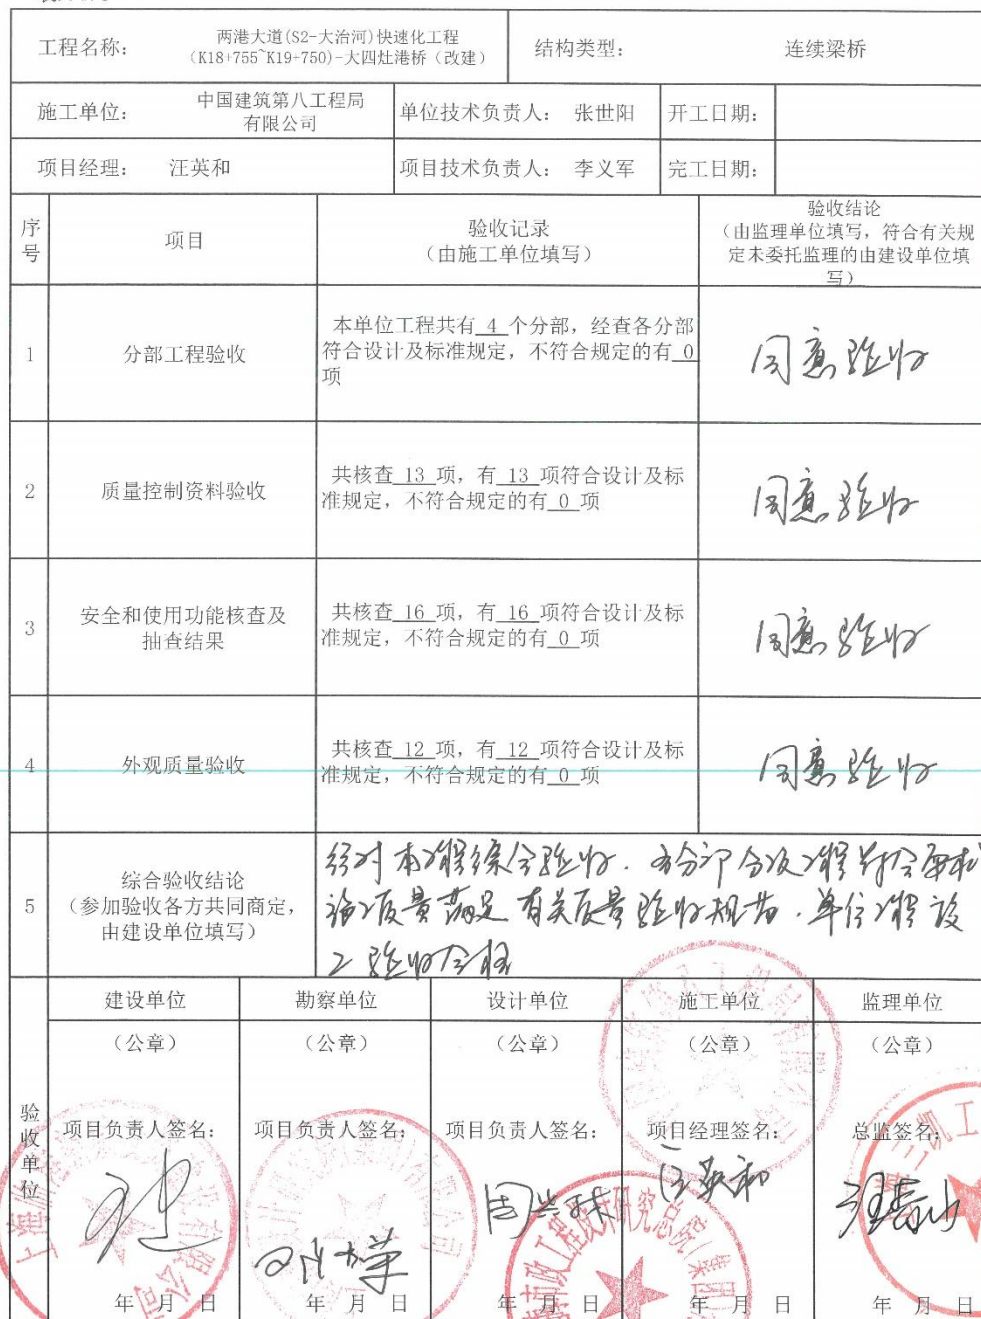 工程名称：
两港大道(S2-大治河)快速化工程
(K18+755~K19+750)-大四灶港桥（改建）
结构类型：
连续梁桥
施工单位：
中国建筑第八工程局
有限公司
单位技术负责人： 张世阳
开工日期：
项目经理： 汪英和
项目技术负责人： 李义军
完工日期：
序
号
项目
验收记录
（由施工单位填写）
验收结论
（由监理单位填写，符合有关规
定未委托监理的由建设单位填
写）
1
分部工程验收
本单位工程共有 4 个分部，经查各分部
符合设计及标准规定，不符合规定的有 0
项
同意验收
2
质量控制资料验收
共核查 13 项，有 13 项符合设计及标
准规定，不符合规定的有 0 项
同意验收
3
安全和使用功能核查及
抽查结果
共核查 16 项，有 16 项符合设计及标
准规定，不符合规定的有 0 项
同意验收
4
外观质量验收
共核查 12 项，有 12 项符合设计及标
准规定，不符合规定的有 0 项
同意验收
5
综合验收结论
（参加验收各方共同商定，
由建设单位填写）
经对本工程综合验收，各分部分项工程符合要求
质量满足有关质量验收规范，单位工程竣
工验收合格
验
收
单
位
建设单位
勘察单位
设计单位
施工单位
监理单位
（公章）
（公章）
（公章）
（公章）
（公章）
项目负责人签名：
项目负责人签名：
项目负责人签名：
项目经理签名：
总监签名：
汪英和
年 月 日
年 月 日
年 月 日
年 月 日
年 月 日